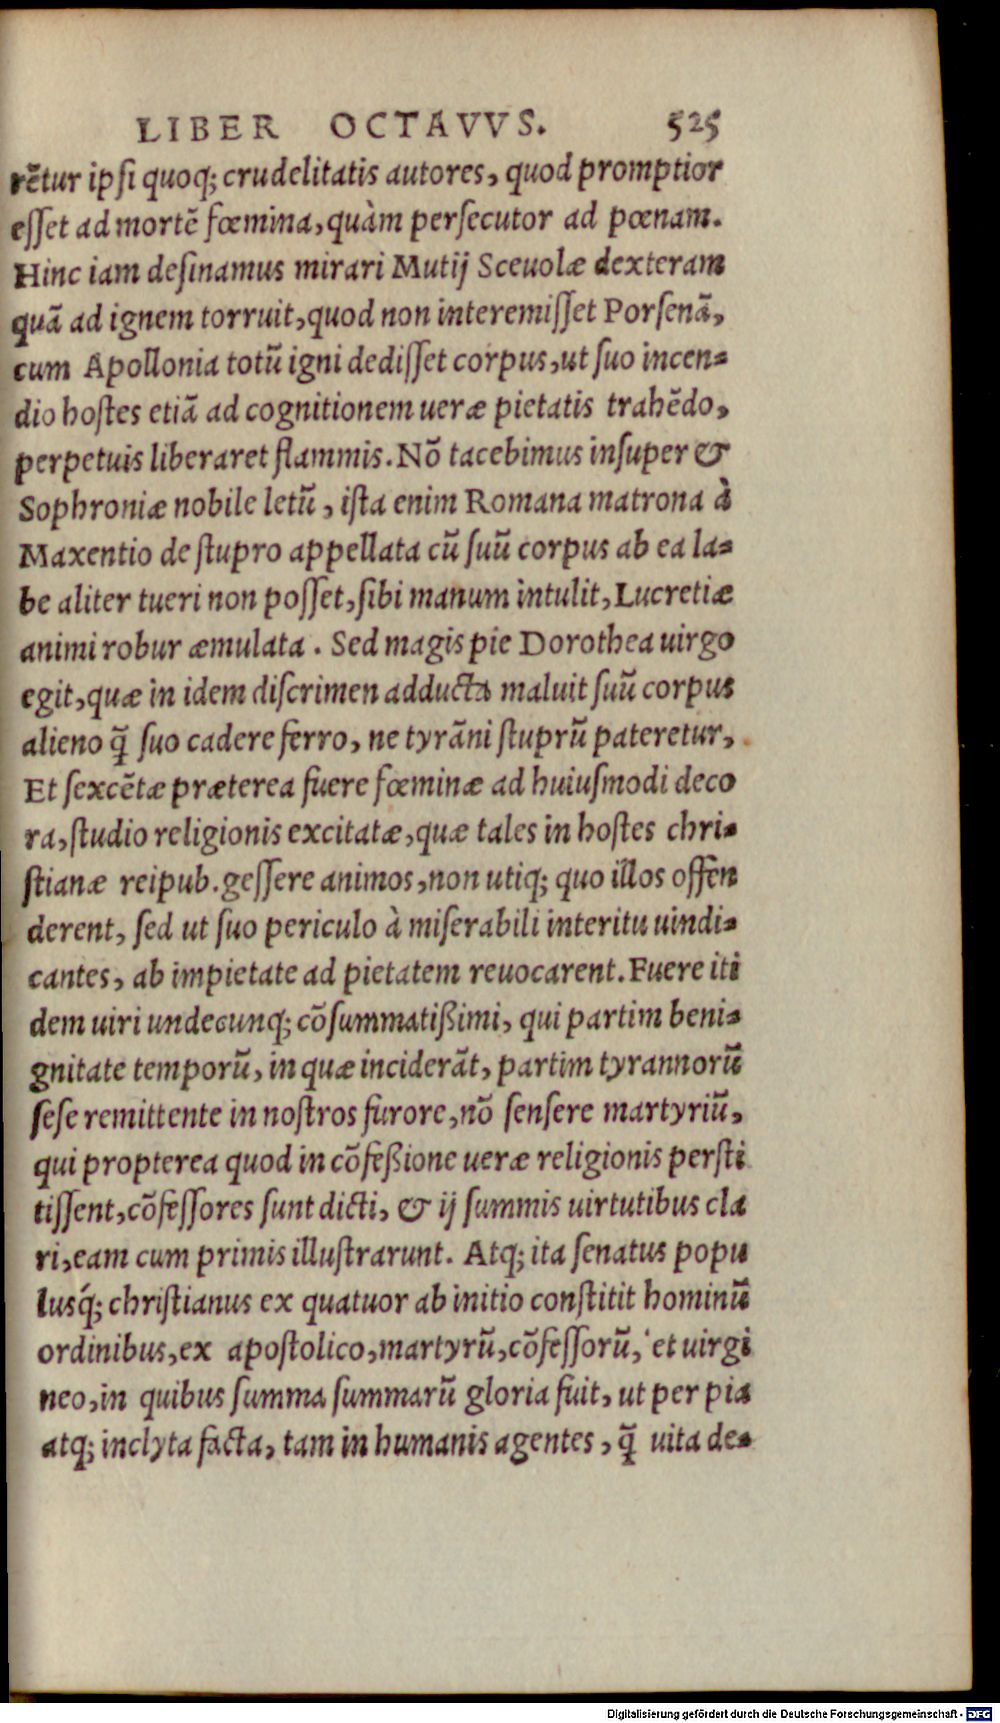 LIBER OCTAVVS. 525
rētur ipsi quoq; crudelitatis autores, quod promptior
esset ad mortē fœmina, quàm persecutor ad pœnam.
Hinc iam desinamus mirari Mutij Sceuolæ dexteram
quā ad ignem torruit, quod non interemisset Porsenā,
cum Apollonia totū igni dedisset corpus, ut suo incen-
dio hostes etiā ad cognitionem ueræ pietatis trahēdo,
perpetuis liberaret flammis. Nō tacebimus insuper &
Sophroniæ nobile letū, ista enim Romana matrona à
Maxentio de stupro appellata cū suū corpus ab ea la-
be aliter tueri non posset, sibi manum intulit, Lucretiæ
animi robur æmulata. Sed magis pie Dorothea uirgo
egit, quæ in idem discrimen adducta maluit suū corpus
alieno q̄ suo cadere ferro, ne tyrāni stuprū pateretur,
Et sexcētæ præterea fuere fœminæ ad huiusmodi deco
ra, studio religionis excitatæ, quæ tales in hostes chri-
stianæ reipub. gessere animos, non utiq; quo illos offen
derent, sed ut suo periculo à miserabili interitu uindi-
cantes, ab impietate ad pietatem reuocarent. Fuere iti
dem uiri undecunq; cōsummatißimi, qui partim beni-
gnitate temporū, in quæ inciderāt, partim tyrannorū
sese remittente in nostros furore, nō sensere martyriū,
qui propterea quod in cōfeßione ueræ religionis persti
tissent, cōfessores sunt dicti, & ij summis uirtutibus cla
ri, eam cum primis illustrarunt. Atq; ita senatus popu
lusq́; christianus ex quatuor ab initio constitit hominū
ordinibus, ex apostolico, martyrū, cōfessorū, et uirgi
neo, in quibus summa summarū gloria fuit, ut per pia
atq; inclyta facta, tam in humanis agentes, q̄ uita de-
Digitalisierung gefördert durch die Deutsche Forschungsgemeinschaft - DFG